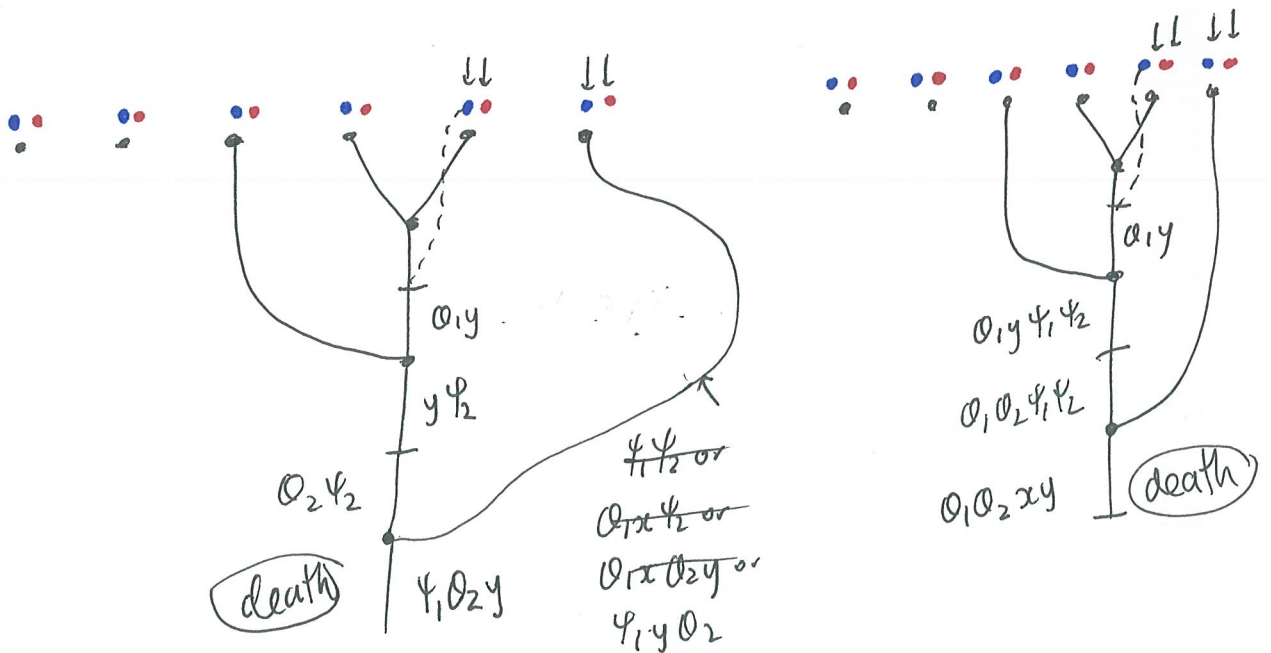 θ₁y
yψ₂
θ₂ψ₂
death
ψ₁θ₂y
ψ₁ψ₂ or
θ₁xψ₂ or
θ₁xθ₂y or
ψ₁yθ₂
θ₁y
θ₁yψ₁ψ₂
θ₁θ₂ψ₁ψ₂
θ₁θ₂xy
death